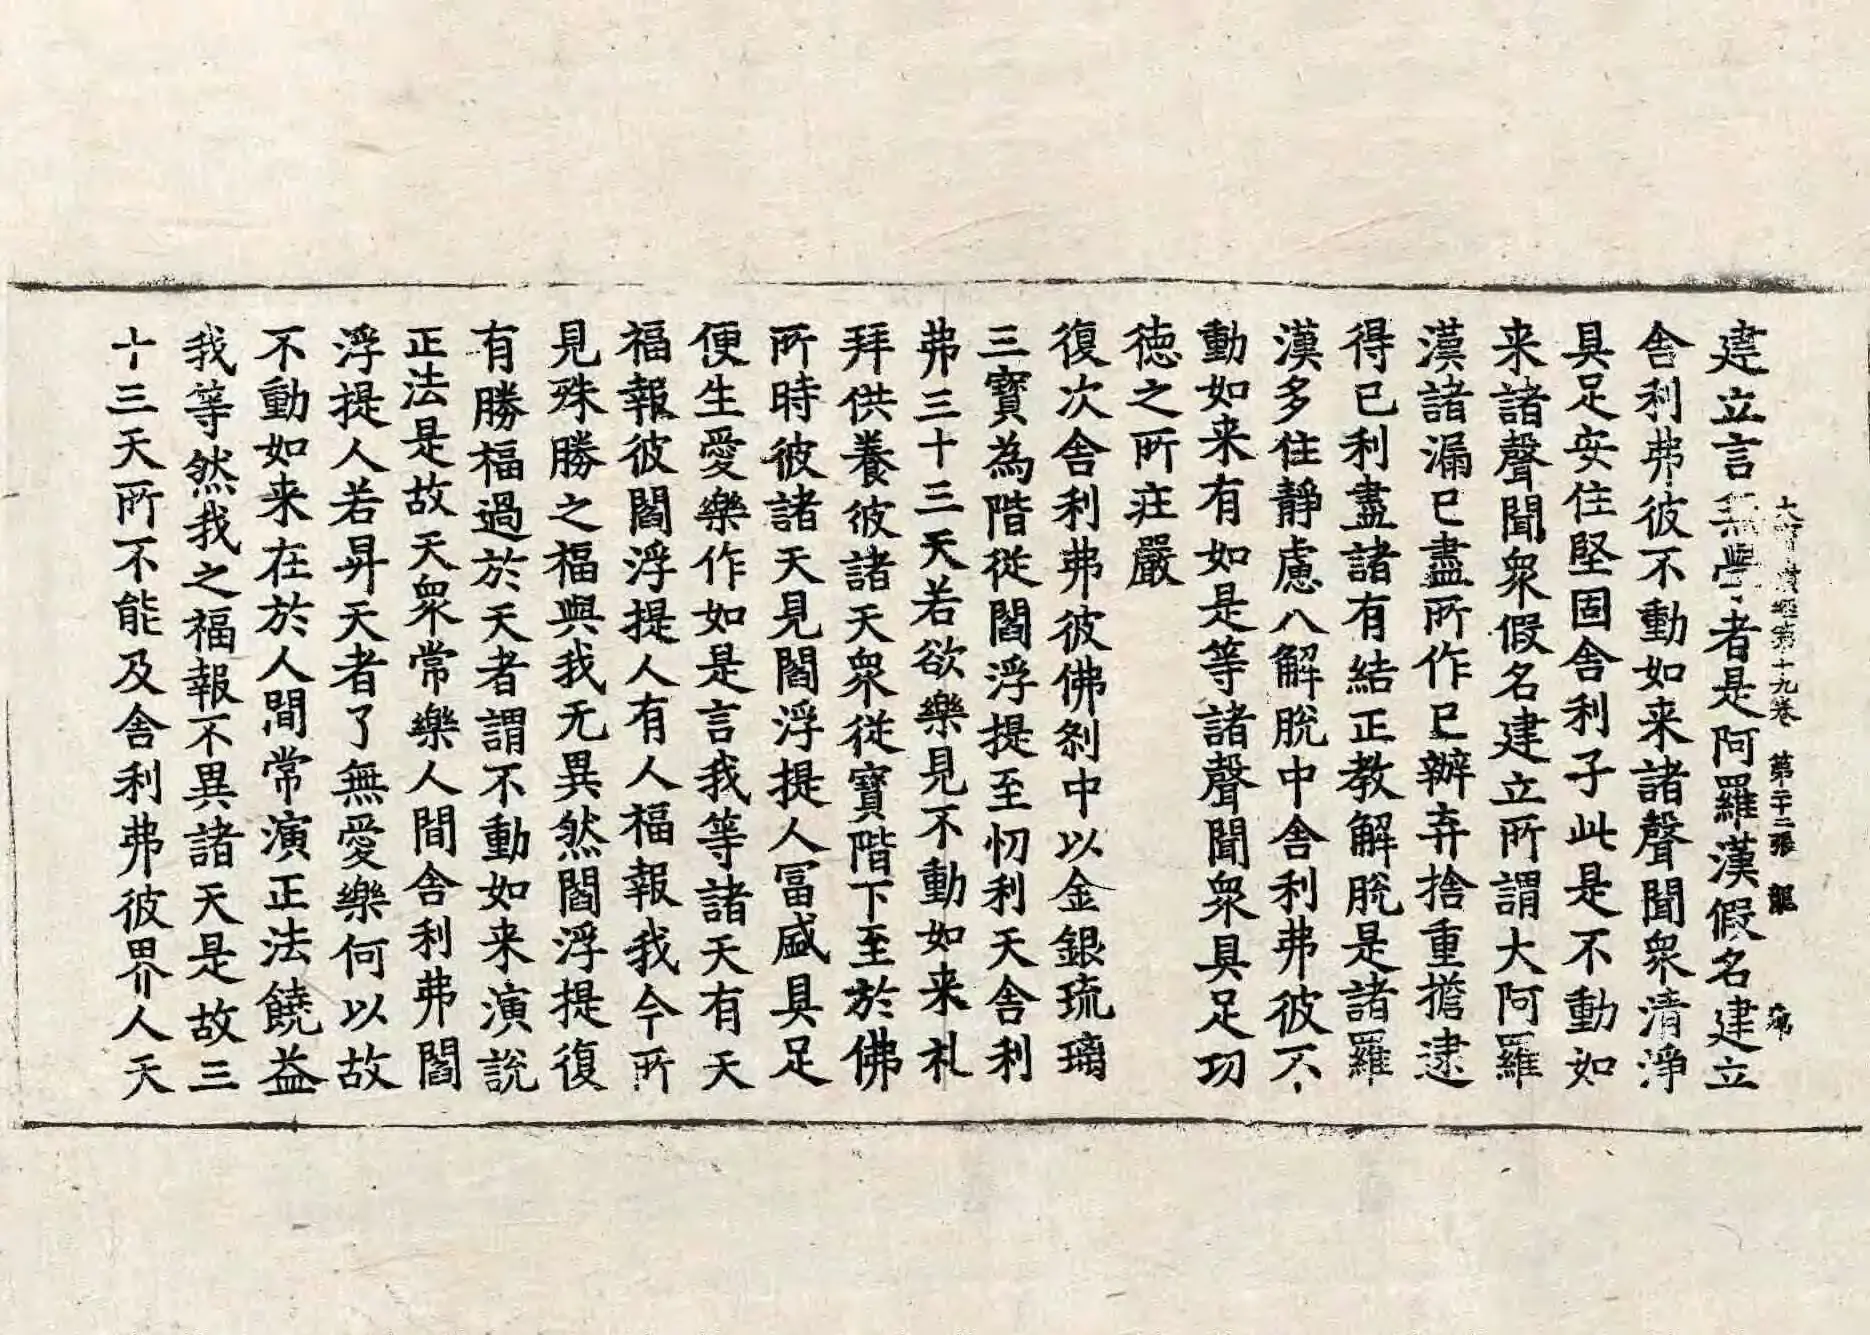 大寶積經第十九卷　第二十二張　龍
建立言無學者是阿羅漢假名建立
舎利弗彼不動如来諸聲聞衆清淨
具足安住堅固舎利子此是不動如
来諸聲聞衆假名建立所謂大阿羅
漢諸漏已盡所作已辦弃捨重擔逮
得已利盡諸有結正教解脫是諸羅
漢多住靜慮八解脫中舎利弗彼不
動如来有如是等諸聲聞衆具足功
徳之所莊嚴
復次舎利弗彼佛刹中以金銀琉璃
三寶為階從閻浮提至忉利天舎利
弗三十三天若欲樂見不動如来礼
拜供養彼諸天衆從寶階下至於佛
所時彼諸天見閻浮提人冨盛具足
便生愛樂作如是言我等諸天有天
福報彼閻浮提人有人福報我今所
見殊勝之福與我无異然閻浮提復
有勝福過於天者謂不動如来演說
正法是故天衆常樂人間舎利弗閻
浮提人若昇天者了無愛樂何以故
不動如来在於人間常演正法饒益
我等然我之福報不異諸天是故三
十三天所不能及舎利弗彼界人天